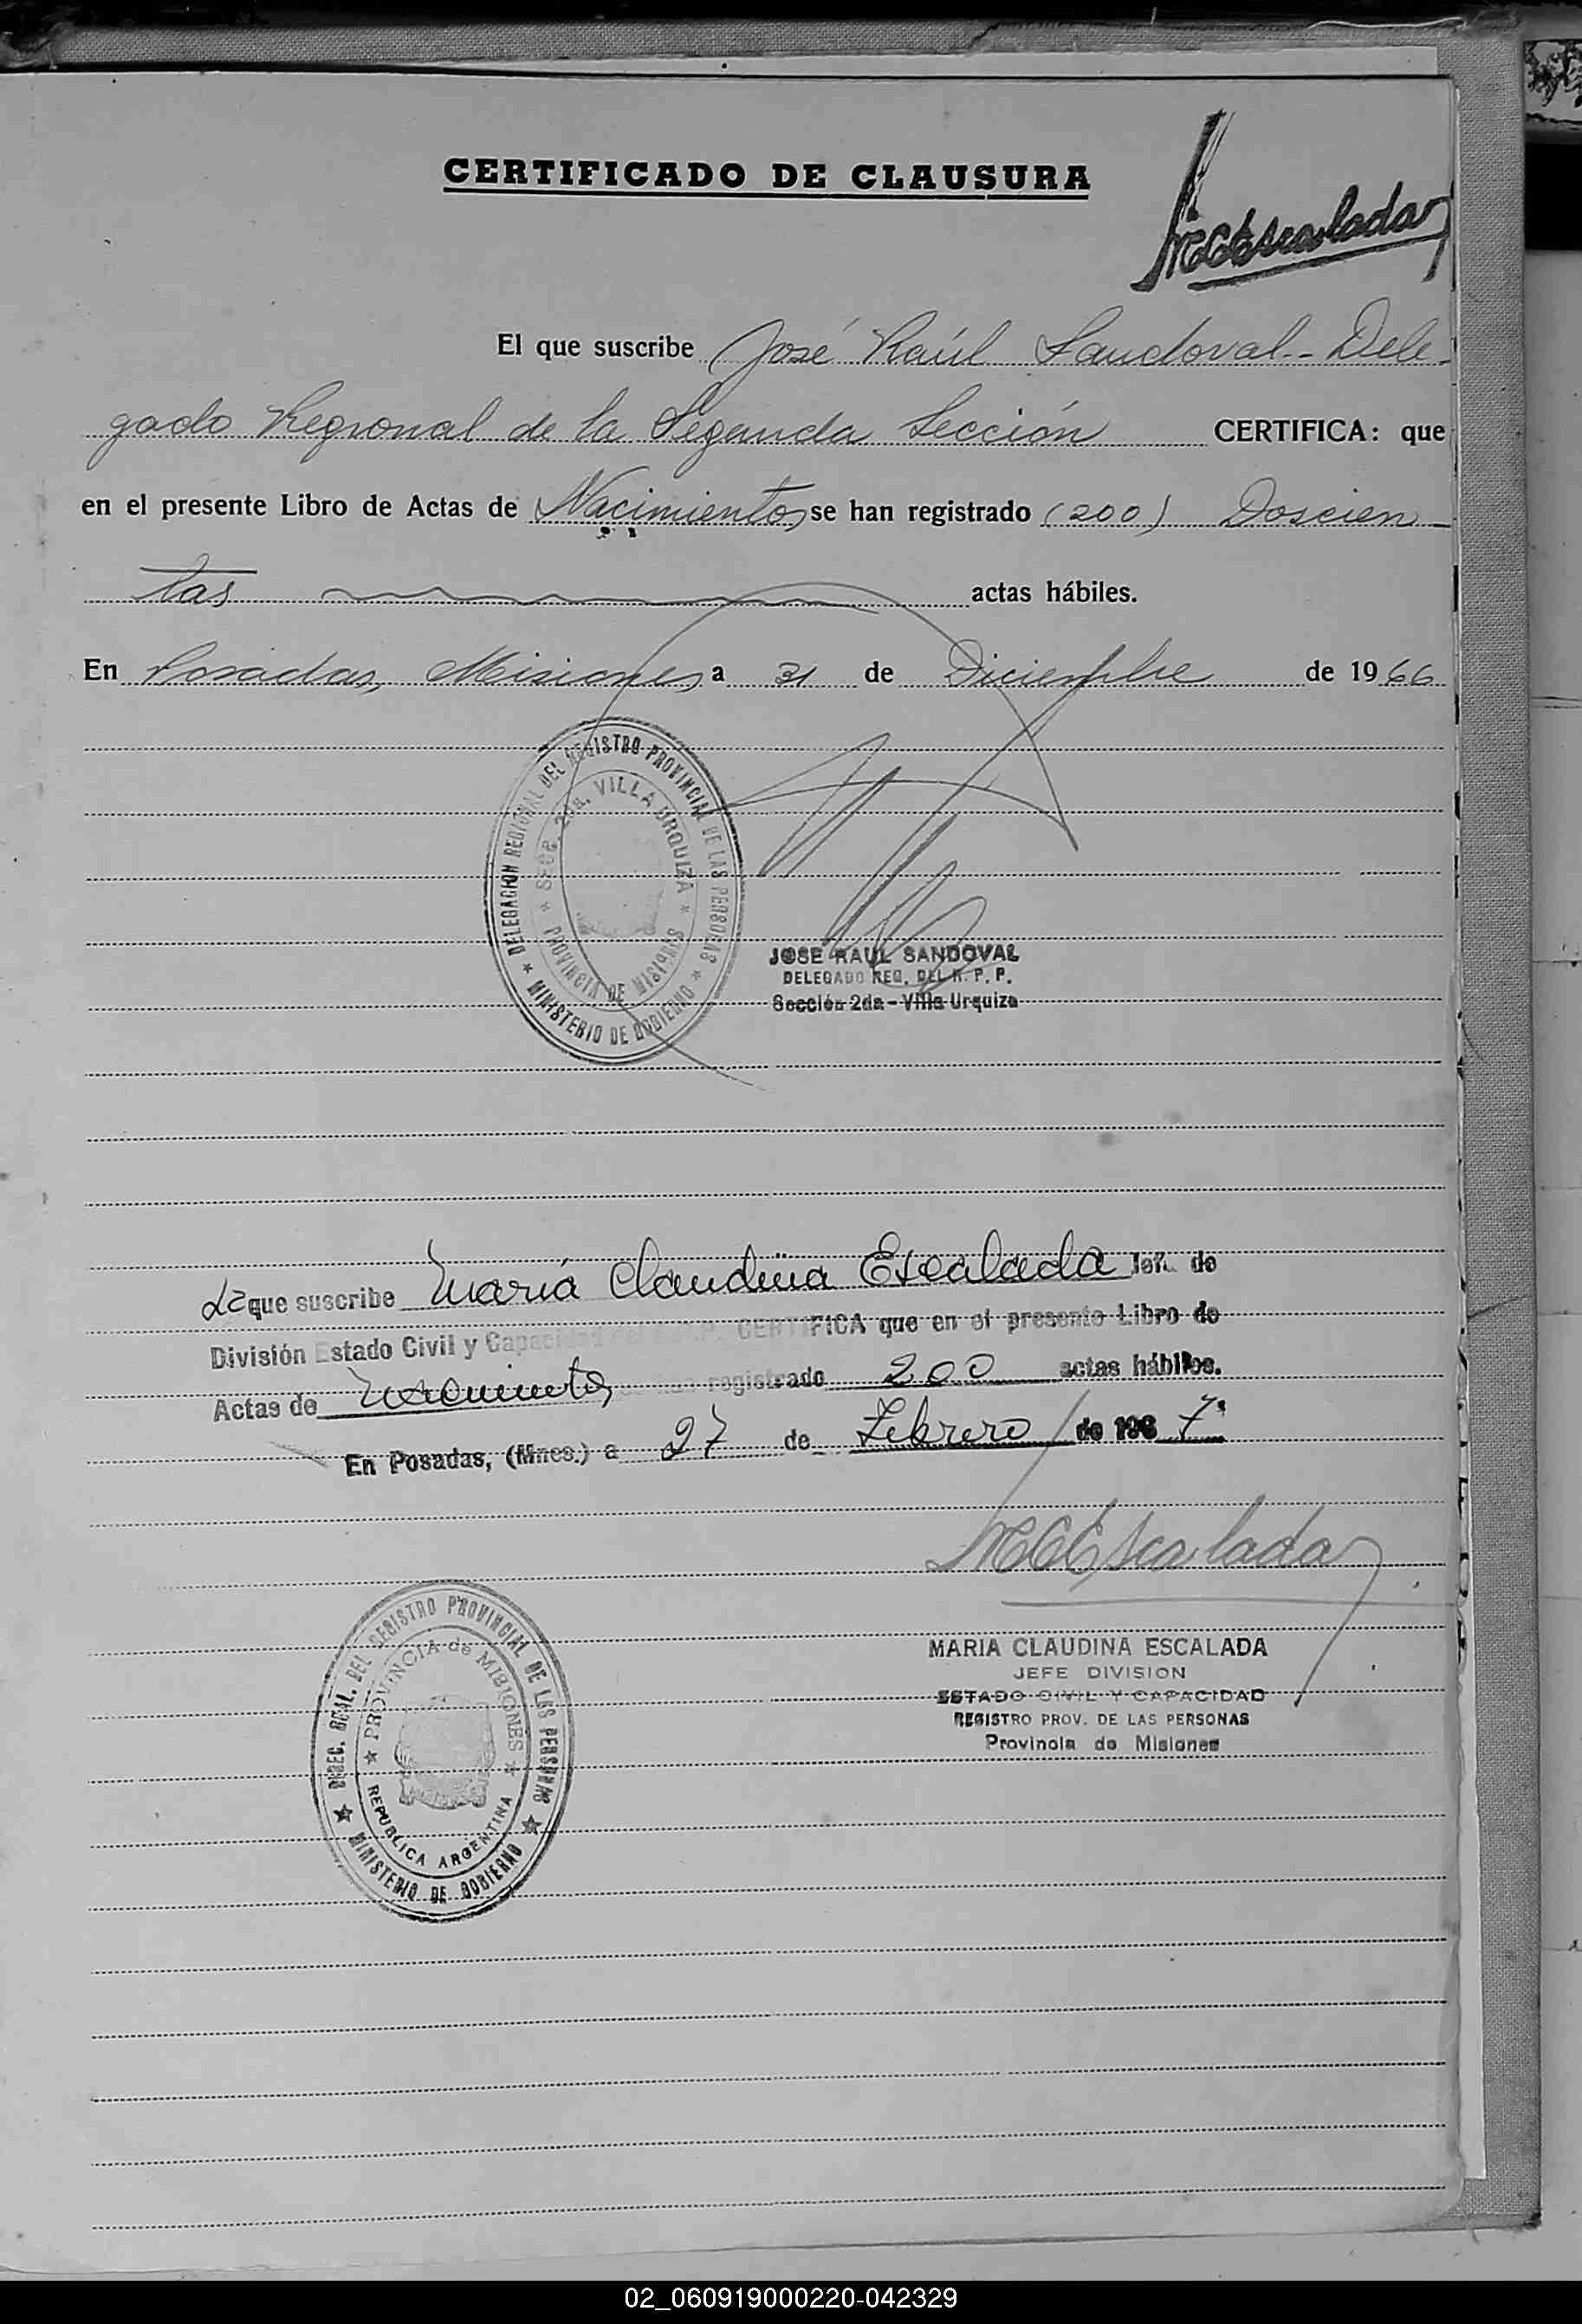 CERTIFICADO DE CLAUSURA
MCEscalada
El que suscribe José Raúl Sandoval - Dele-
gado Regional de la Segunda Sección CERTIFICA: que
en el presente Libro de Actas de Nacimientos se han registrado (200) Doscien-
tas actas hábiles.
En Posadas, Misiones, a 31 de Diciembre de 1966
DELEGACION REGIONAL DEL REGISTRO PROVINCIAL DE LAS PERSONAS
★ MINISTERIO DE GOBIERNO ★
SECC. 2da. VILLA URQUIZA
★ PROVINCIA DE MISIONES ★
JOSE RAUL SANDOVAL
DELEGADO REG. DEL R. P. P.
Sección 2da - Villa Urquiza
La que suscribe María Claudina Escalada Jefe de
División Estado Civil y Capacidad del CERTIFICA que en el presente Libro de
Actas de Nacimientos se han registrado 200 actas hábiles.
En Posadas, (Mnes.) a 27 de Febrero de 1967
MCEscalada
DIREC. GRAL. DEL REGISTRO PROVINCIAL DE LAS PERSONAS
★ MINISTERIO DE GOBIERNO ★
★ PROVINCIA de MISIONES ★
REPUBLICA ARGENTINA
MARIA CLAUDINA ESCALADA
JEFE DIVISION
ESTADO CIVIL Y CAPACIDAD
REGISTRO PROV. DE LAS PERSONAS
Provincia de Misiones
02_060919000220-042329